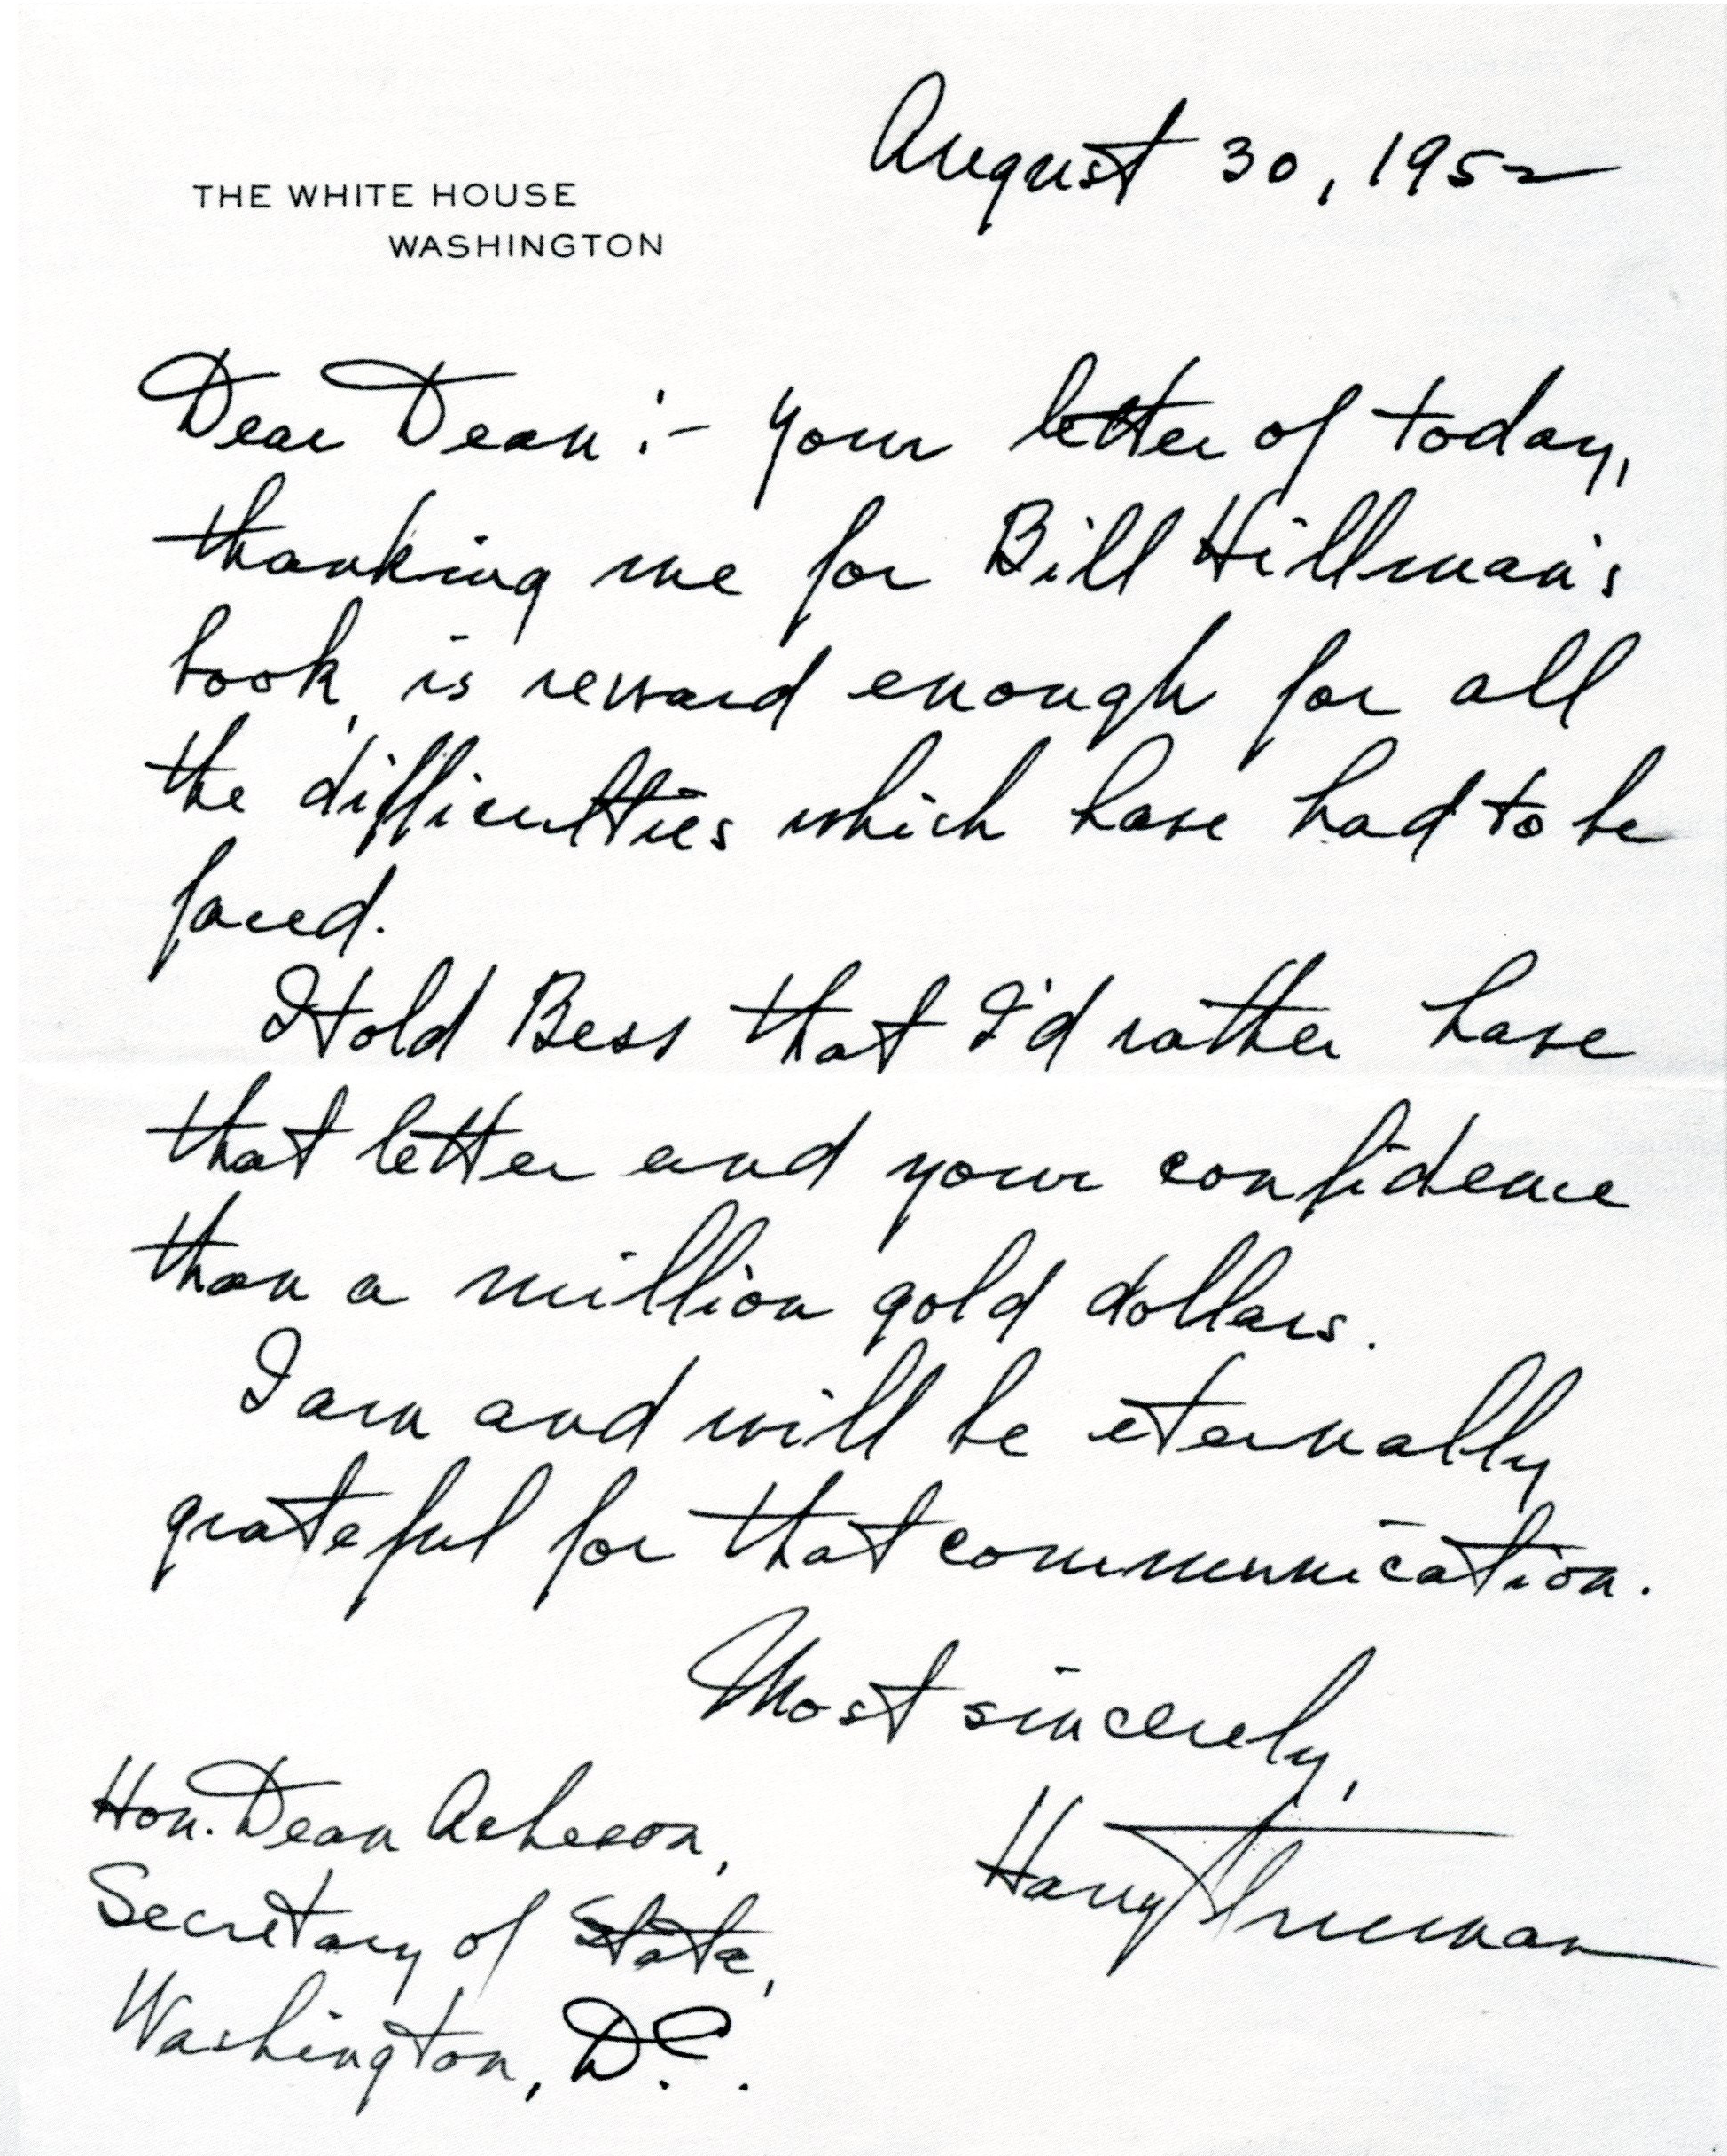 August 30, 1952
THE WHITE HOUSE
WASHINGTON
Dear Dean:- Your letter of today,
thanking me for Bill Hillman's
book, is reward enough for all
the difficulties which have had to be
faced.
I told Bess that I'd rather have
that letter and your confidence
than a million gold dollars.
I am and will be eternally
grateful for that communication.
Most sincerely,
Harry Truman
Hon. Dean Acheson,
Secretary of State,
Washington, D.C.